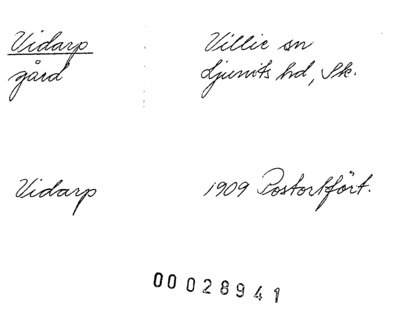 Vidarp Villie sn
gård Ljunits hd, Sk.
Vidarp 1909 Postortfört.
00028941